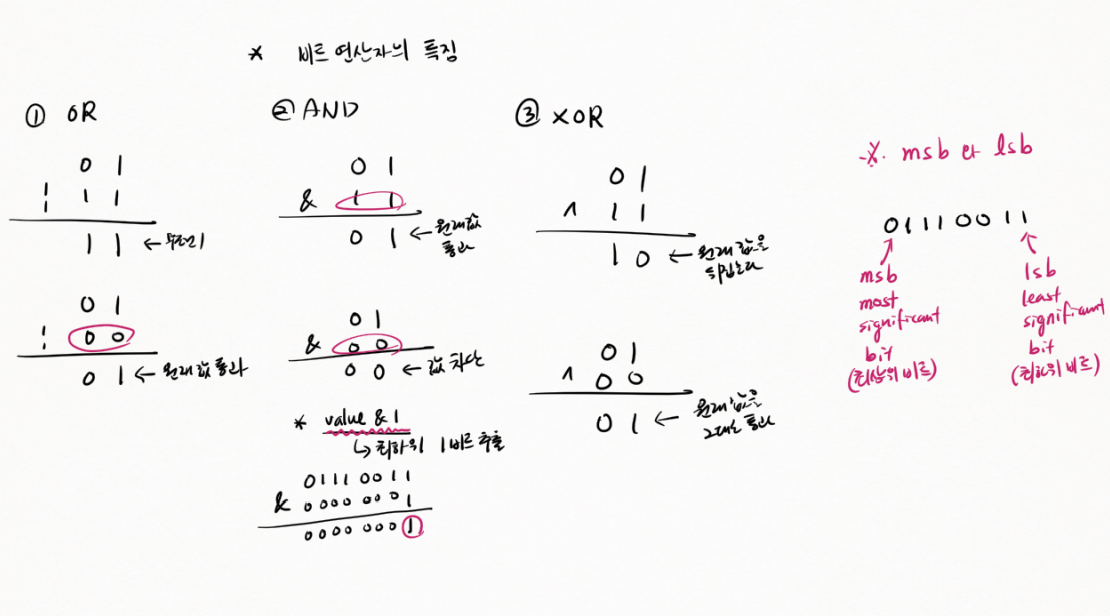 * 비트 연산자의 특징
① OR
0 1
| 1 1
1 1 ← 무조건 1
0 1
| 0 0
0 1 ← 원래 값 통과
② AND
0 1
& 1 1
0 1 ← 원래 값
통과
0 1
& 0 0
0 0 ← 값 차단
* value & 1
↳ 최하위 1비트 추출
0111 0011
& 0000 0001
0000 0001
③ XOR
0 1
^ 1 1
1 0 ← 원래 값을
뒤집는다
0 1
^ 0 0
0 1 ← 원래 값을
그대로 통과
※ msb 와 lsb
0111 0011
msb
most
significant
bit
(최상위 비트)
lsb
least
significant
bit
(최하위 비트)